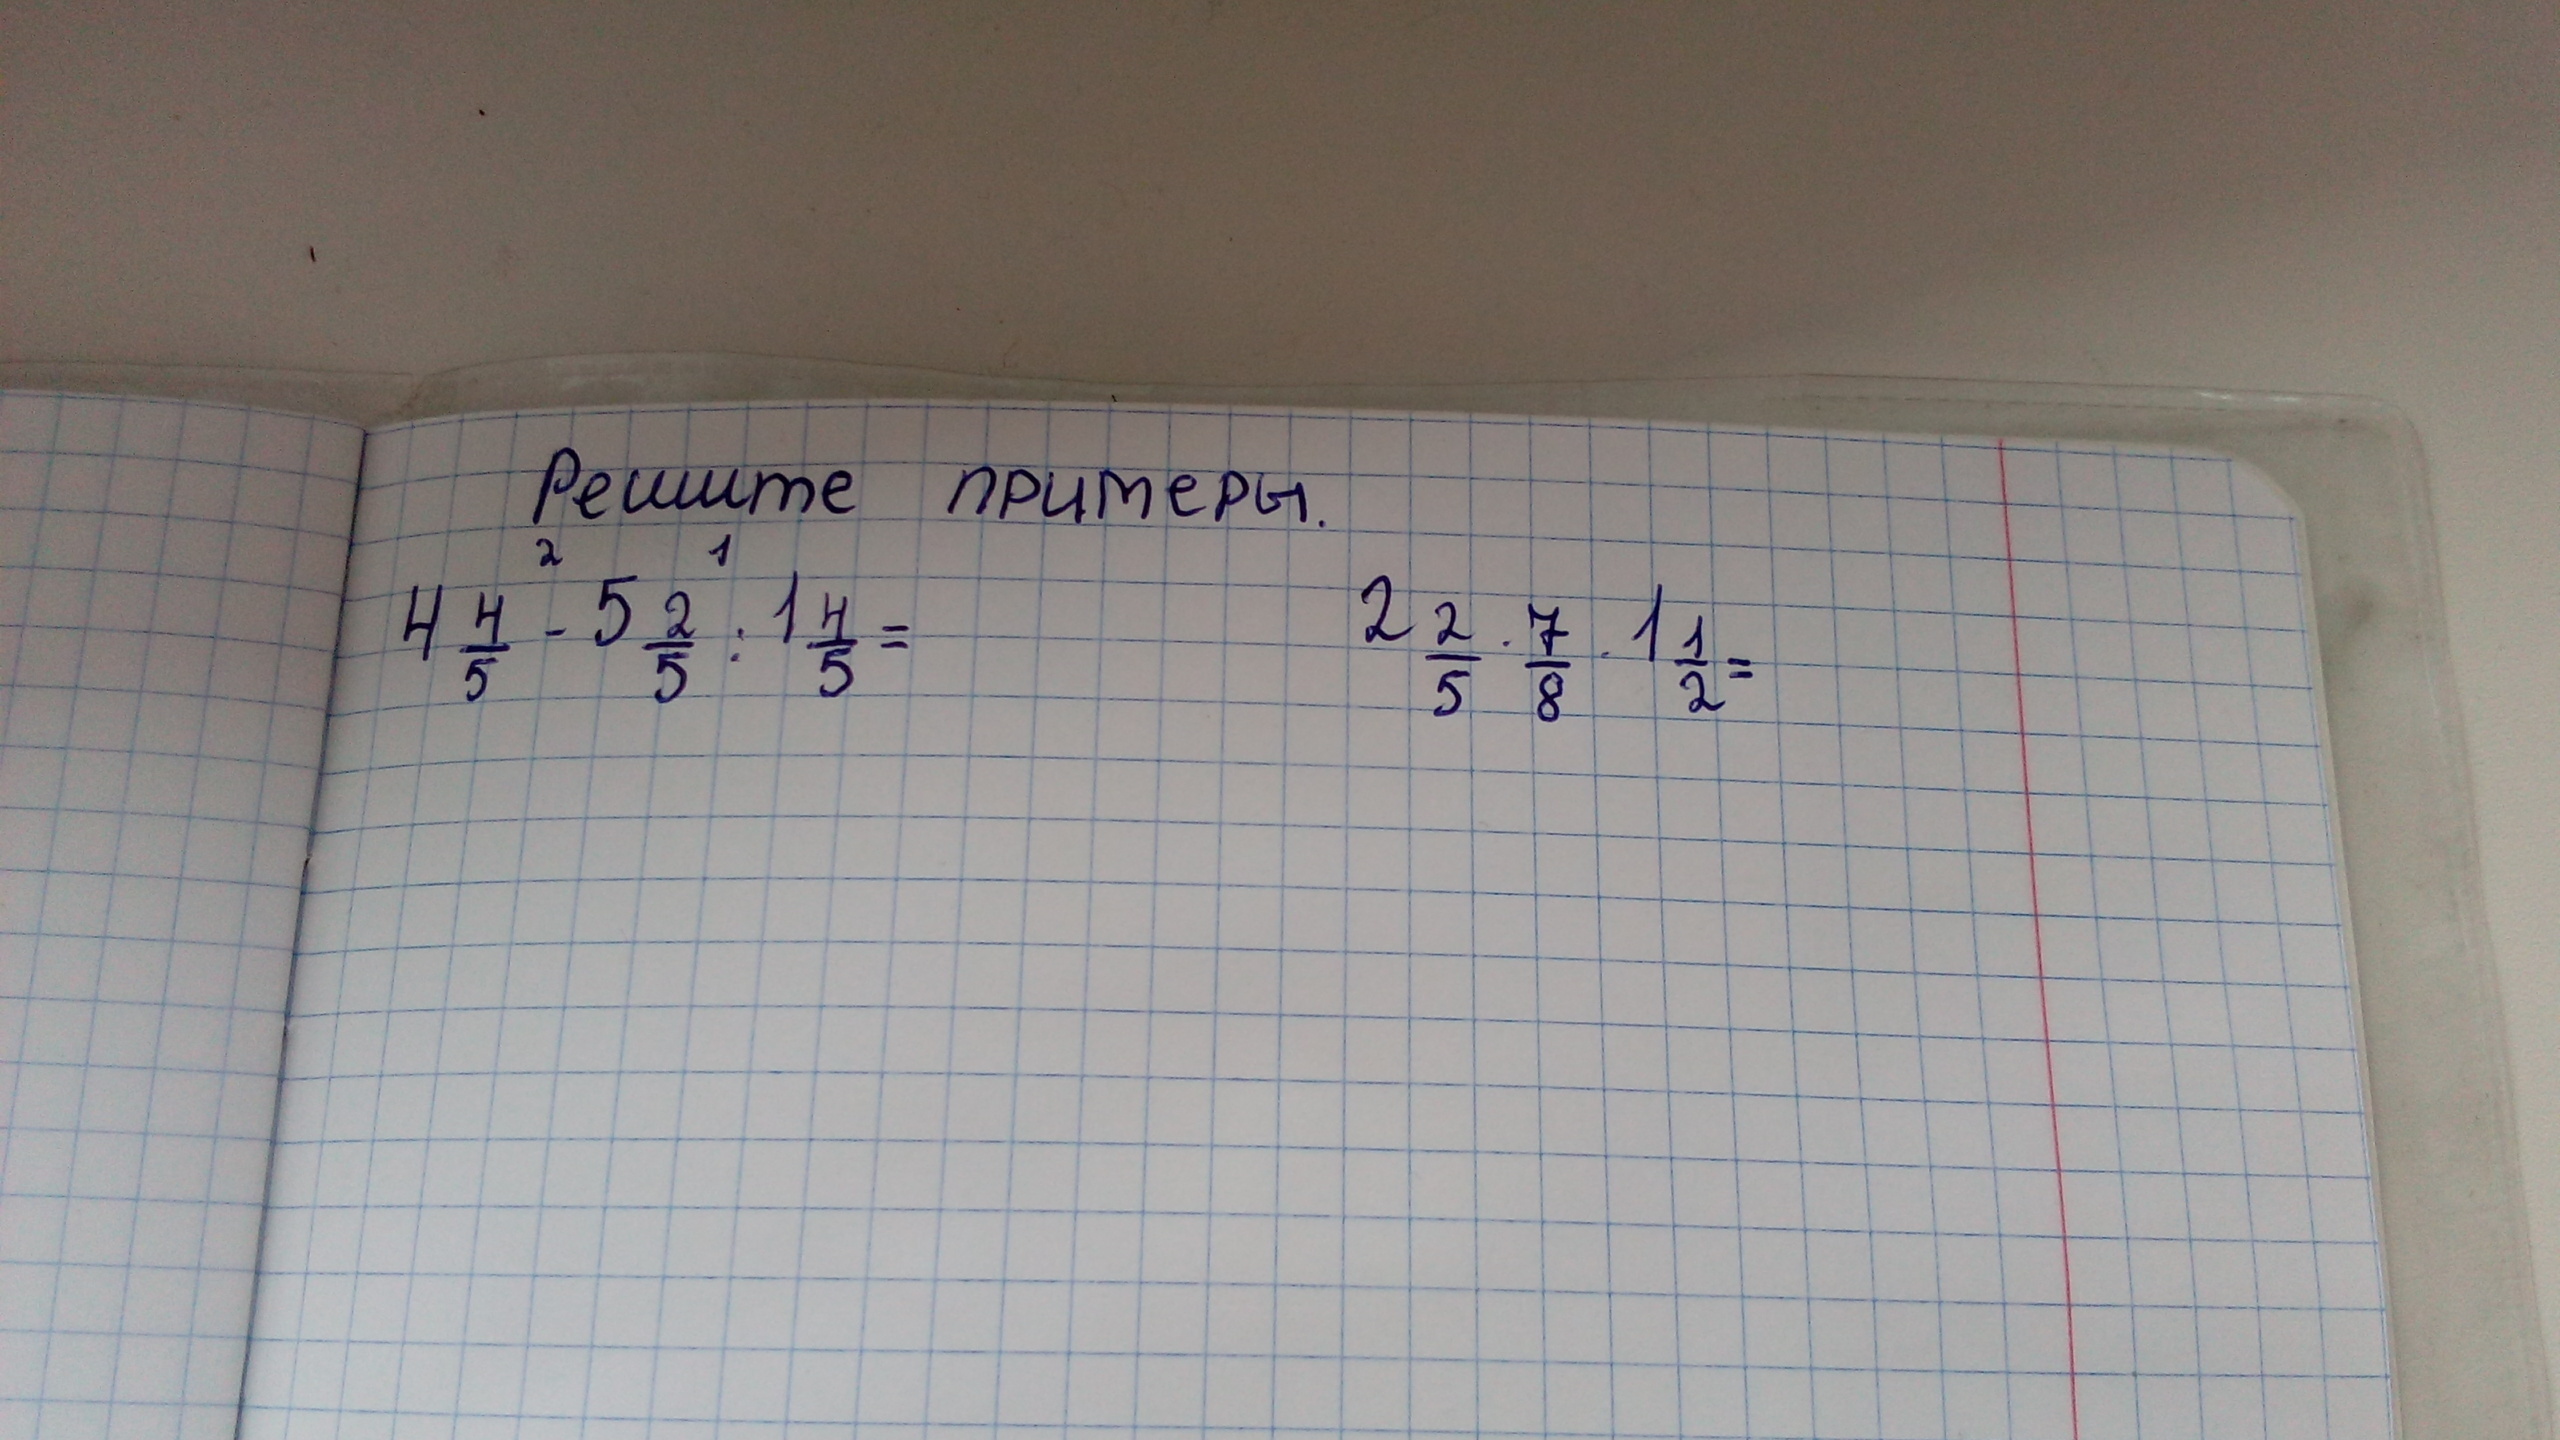 Решите примеры.
2 1
4 4/5 - 5 2/5 : 1 4/5 = 2 2/5 · 7/8 · 1 1/2 =